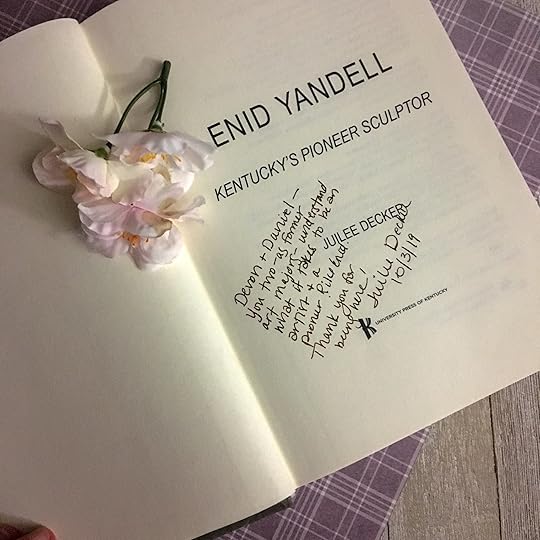 ENID YANDELL
KENTUCKY'S PIONEER SCULPTOR
JUILEE DECKER
Devon + Daniel –
You two – as former
art majors – understand
what it takes to be an
artist & a
pioneer like Enid
Thank you for
being here.
Juilee Decker
10/3/19
UNIVERSITY PRESS OF KENTUCKY